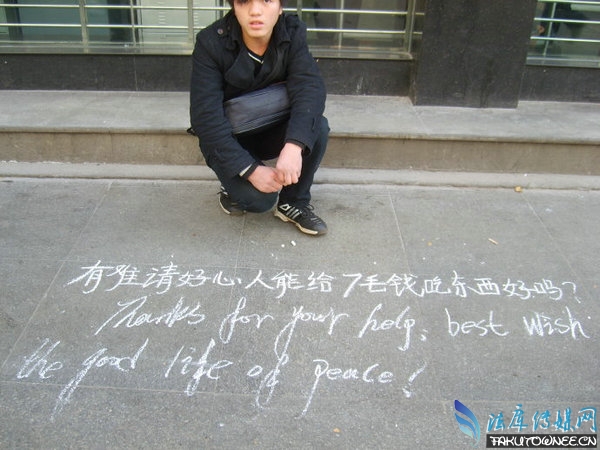 有难请好心人能给7毛钱吃东西好吗?
Thanks for your help. best wish
the good life of peace!
法库传媒网
FAKUTOWNEE.CN